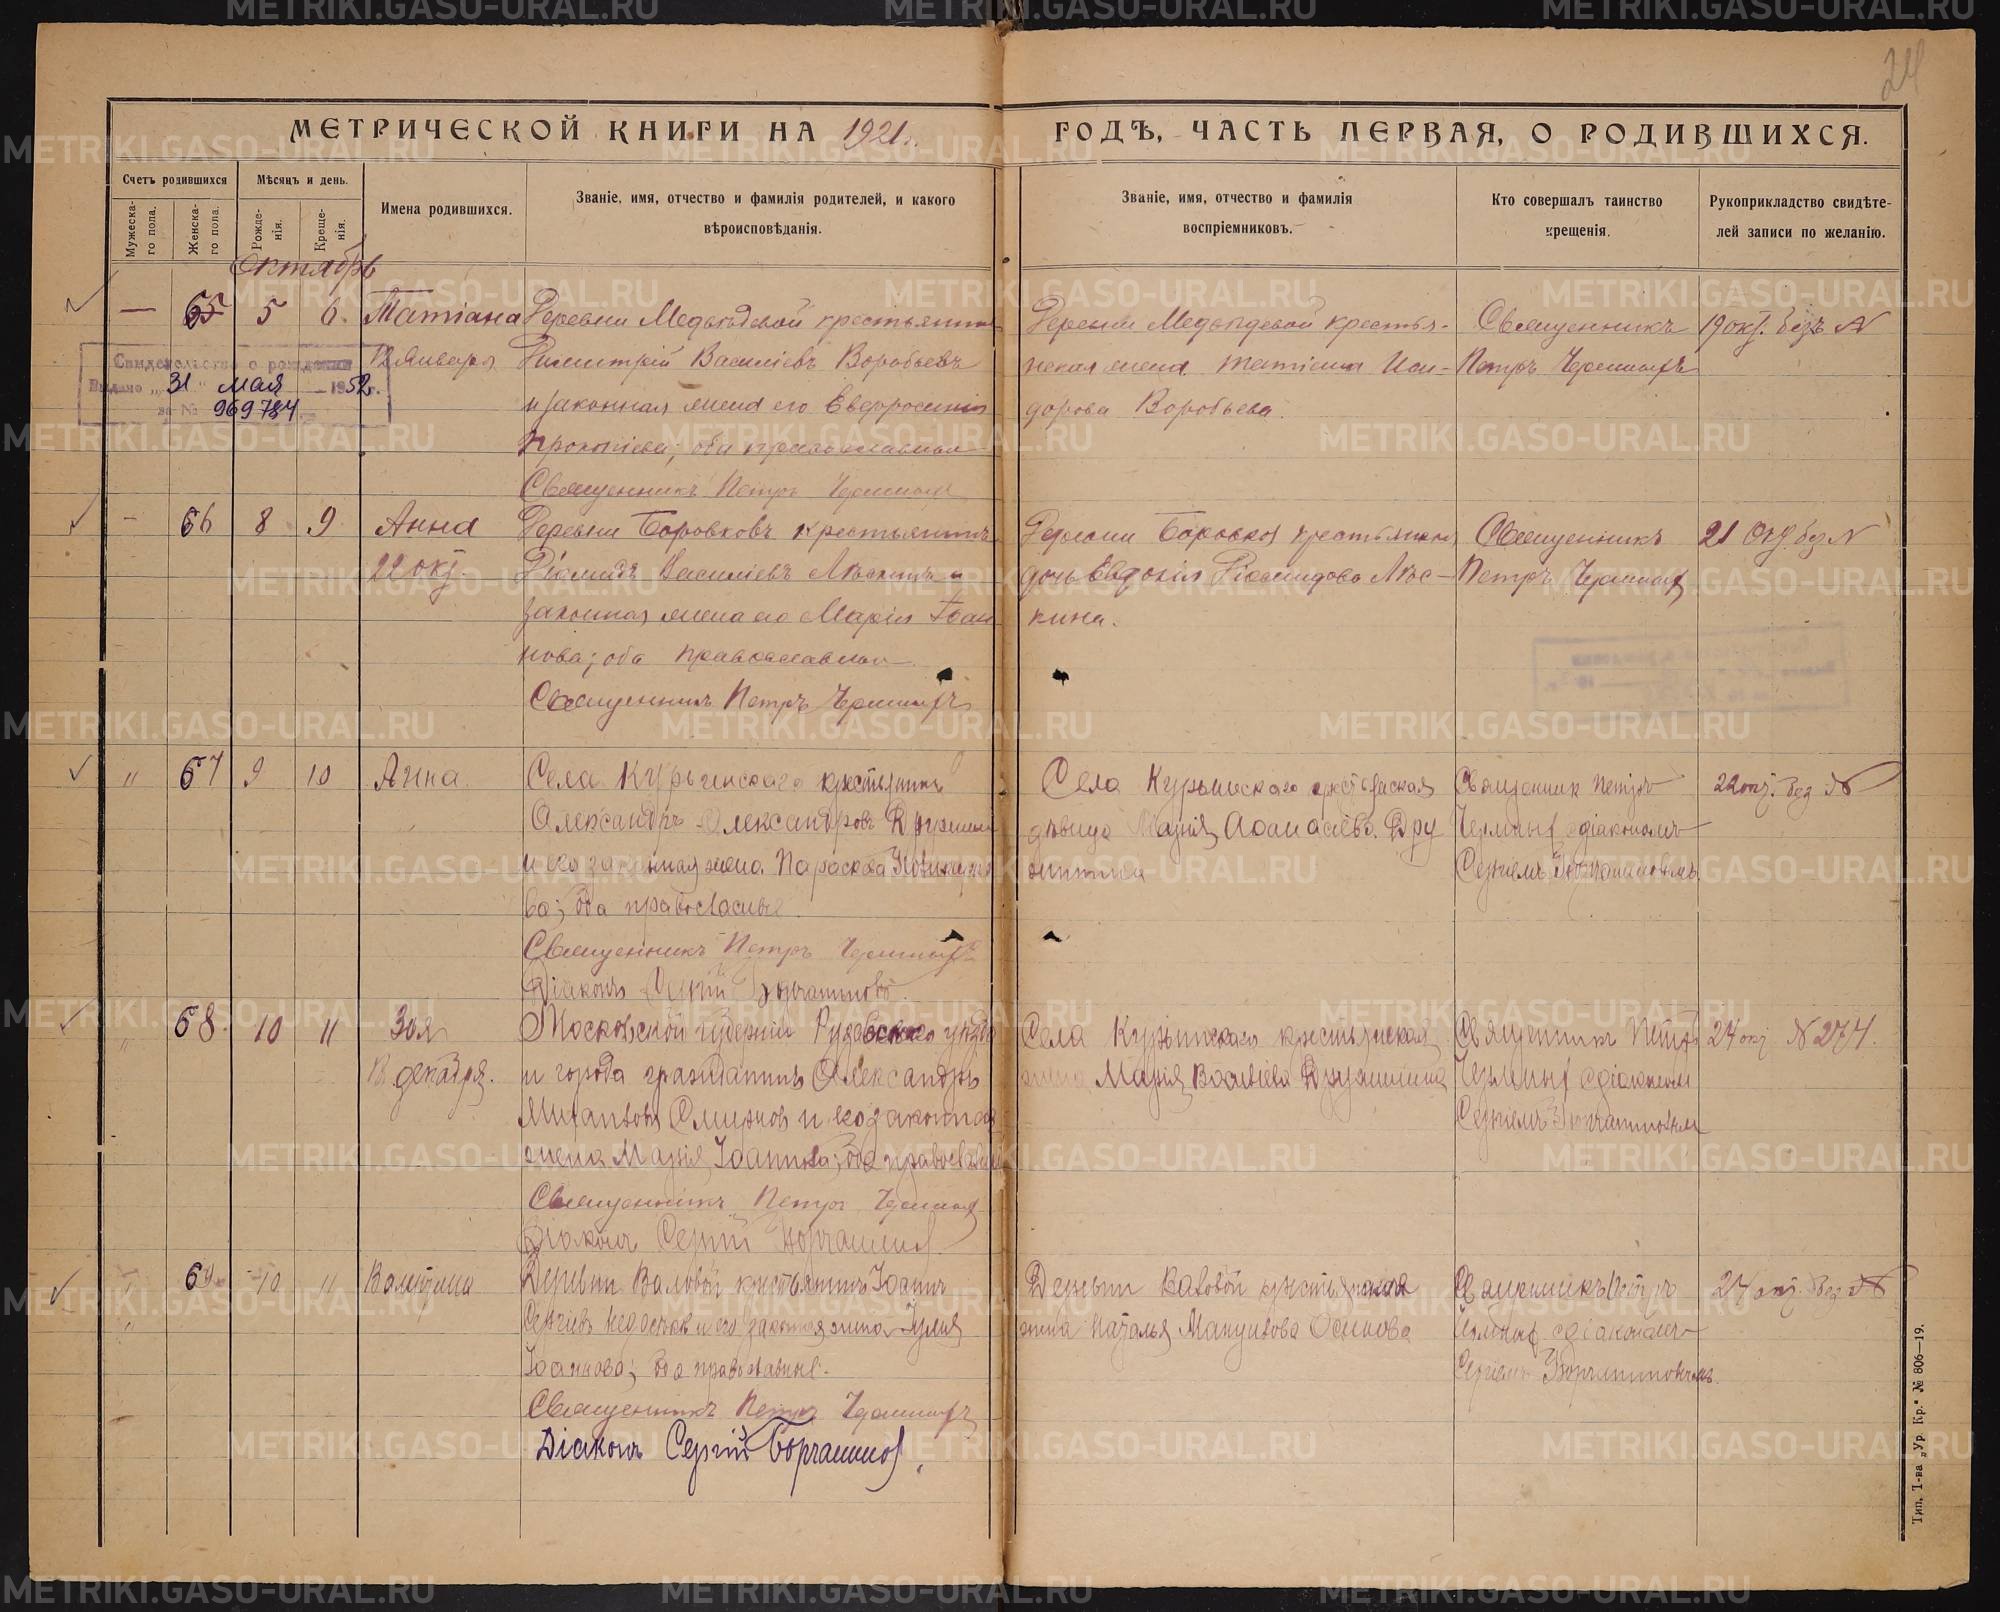 24
МЕТРИЧЕСКОЙ КНИГИ НА 1921 г.
ГОДЪ, ЧАСТЬ ПЕРВАЯ, О РОДИВШИХСЯ.
Счетъ родившихся
Мужеска-го пола.
Женска-го пола.
Мѣсяцъ и день.
Рожде-нія.
Креще-нія.
Имена родившихся.
Званіе, имя, отчество и фамилія родителей, и какого
вѣроисповѣданія.
Званіе, имя, отчество и фамилія
воспріемниковъ.
Кто совершалъ таинство
крещенія.
Рукоприкладство свидѣте-
лей записи по желанію.
Октябрь
— 65 5 6. Татіана
12 Января
Свидетельство о рождении
Выдано „31" мая 1952 г.
за № 969784
Деревни Медвѣдевой крестьянинъ
Димитрій Василіевъ Воробьевъ
и законная жена его Евфросинія
Прокопіева; оба православные
Священникъ Петръ
Деревни Медвѣдевой крестья-
нская жена Татіана Иси-
дорова Воробьева.
Священникъ
Петръ
19 окт. безъ №
- 66 8 9 Анна
22 окт.
Деревни Боровковъ крестьянинъ
Діомидъ Василіевъ Лѣскинъ и
законная жена его Марія Іоан
нова; оба православные
Священникъ Петръ
Деревни Боровковъ крестьянская
дочь Евдокія Діомидова Лѣс-
кина.
Священникъ
Петръ
21 Окт. без №
" 67 9 10 Анна.
Села Курьинскаго крестьянинъ
Александръ Александровъ Дружинин
и его законная жена Параскева
ва; оба православные.
Священникъ Петръ
Діаконъ Сергій
Села Курьинскаго крестьянская
дѣвица Марія Аѳанасіева Дру
жинина
Священник Петръ
съ діакономъ
Сергіемъ
22 окт. без №
" 68. 10 11 Зоя
18 декабря.
Московской губерніи Рузскаго уѣзда
и города гражданинъ Александръ
Михаиловъ Смирнов и его законная
жена Марія Іоаннова; оба православные
Священникъ Петръ
Діаконъ Сергій
Села Курьинскаго крестьянская
жена Марія Василіева Дружинина
Священникъ Петръ
съ діакономъ
Сергіемъ
24 окт № 274.
" 69 10 11 Валентина
Деревни Валовой крестьянинъ Іоаннъ
Сергіевъ Недосѣков и его законная жена Іулія
Іоаннова; оба православные.
Священникъ Петръ
Діаконъ Сергій
Деревни Валовой крестьянская
жена Наталья Мануилова Осинова
Священникъ Петръ
съ діакономъ
Сергіемъ
27 окт. без №
Тип. Т-ва „Ур. Кр." № 806—19.
METRIKI.GASO-URAL.RU